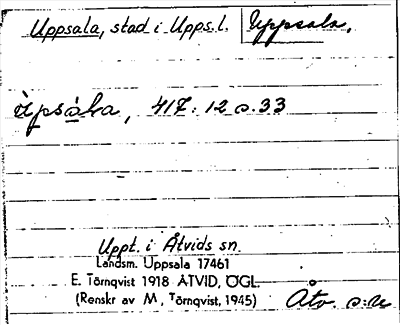 Uppsala, stad i Upps.l. Uppsala,
417: 12 o. 33
Uppt. i Åtvids sn.
Landsm. Uppsala 17461
E. Törnqvist 1918 ÅTVID, ÖGL
(Renskr av M. Törnqvist, 1945) Åtv.